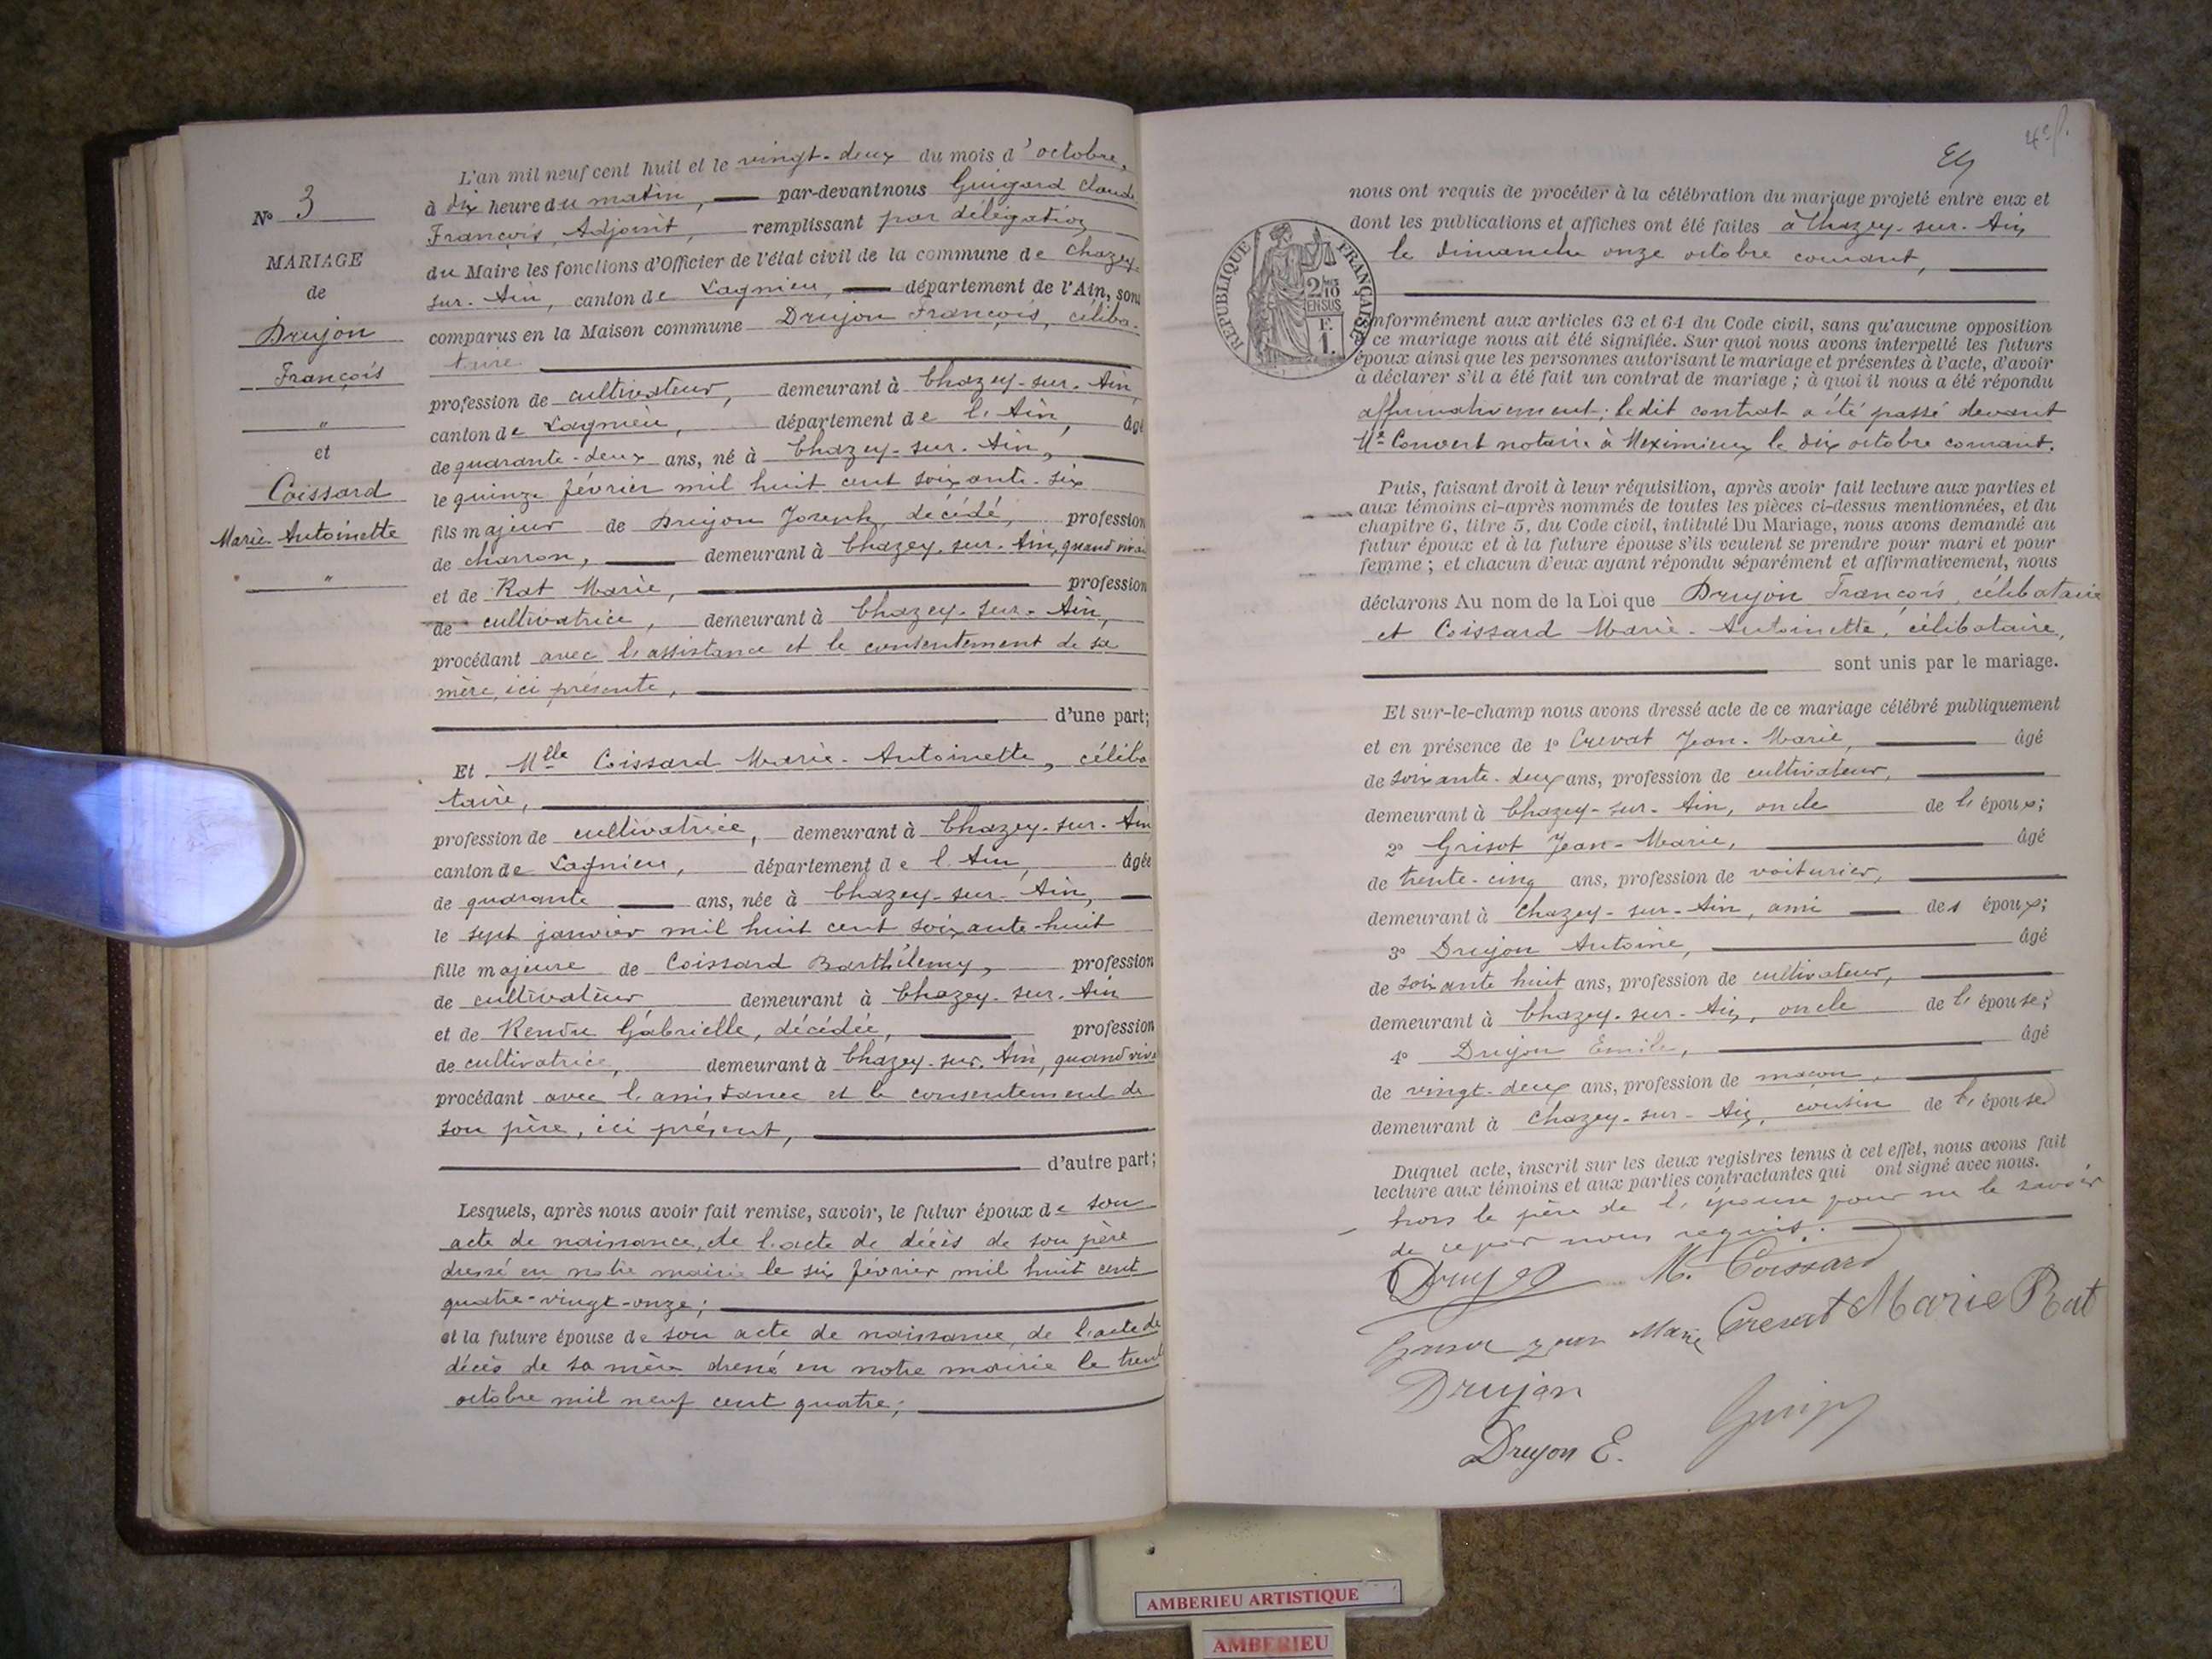 N° 3
MARIAGE
de
Drujon
François
"
et
Coissard
Marie-Antoinette
"
L'an mil neuf cent huit et le vingt-deux du mois d'octobre,
à dix heure du matin, par-devant nous Guigard Claude
François, Adjoint, remplissant par délégation
du Maire les fonctions d'Officier de l'état civil de la commune de Chazey-
sur-Ain, canton de Lagnieu, département de l'Ain, sont
comparus en la Maison commune Drujon François, céliba-
taire
profession de cultivateur, demeurant à Chazey-sur-Ain,
canton de Lagnieu, département de l'Ain, âgé
de quarante-deux ans, né à Chazey-sur-Ain,
le quinze février mil huit cent soixante-six
fils majeur de Drujon Joseph, décédé, profession
de charron, demeurant à Chazey-sur-Ain, quand vivai
et de Rat Marie, profession
de cultivatrice, demeurant à Chazey-sur-Ain,
procédant avec l'assistance et le consentement de sa
mère, ici présente,
d'une part;
Et Mlle Coissard Marie-Antoinette, céliba
taire,
profession de cultivatrice, demeurant à Chazey-sur-Ain
canton de Lagnieu, département de l'Ain, âgée
de quarante ans, née à Chazey-sur-Ain,
le sept janvier mil huit cent soixante-huit
fille majeure de Coissard Barthélemy, profession
de cultivateur demeurant à Chazey-sur-Ain
et de Rendu Gabrielle, décédée, profession
de cultivatrice, demeurant à Chazey-sur-Ain, quand viva
procédant avec l'assistance et le consentement de
son père, ici présent,
d'autre part;
Lesquels, après nous avoir fait remise, savoir, le futur époux de son
acte de naissance, de l'acte de décès de son père
dressé en notre mairie le six février mil huit cent
quatre-vingt-onze;
et la future épouse de son acte de naissance, de l'acte de
décès de sa mère dressé en notre mairie le trent
octobre mil neuf cent quatre;
nous ont requis de procéder à la célébration du mariage projeté entre eux et
dont les publications et affiches ont été faites à Chazey-sur-Ain
le dimanche onze octobre courant,
RÉPUBLIQUE FRANÇAISE
2/10
EN SUS
F.
1.
onformément aux articles 63 et 64 du Code civil, sans qu'aucune opposition
ce mariage nous ait été signifiée. Sur quoi nous avons interpellé les futurs
époux ainsi que les personnes autorisant le mariage et présentes à l'acte, d'avoir
à déclarer s'il a été fait un contrat de mariage ; à quoi il nous a été répondu
affirmativement; le dit contrat a été passé devant
Me Convert notaire à Meximieux le dix octobre courant.
Puis, faisant droit à leur réquisition, après avoir fait lecture aux parties et
aux témoins ci-après nommés de toutes les pièces ci-dessus mentionnées, et du
chapitre 6, titre 5, du Code civil, intitulé Du Mariage, nous avons demandé au
futur époux et à la future épouse s'ils veulent se prendre pour mari et pour
femme ; et chacun d'eux ayant répondu séparément et affirmativement, nous
déclarons Au nom de la Loi que Drujon François, célibataire
et Coissard Marie-Antoinette, célibataire,
sont unis par le mariage.
Et sur-le-champ nous avons dressé acte de ce mariage célébré publiquement
et en présence de 1° Crevat Jean-Marie, âgé
de soixante-deux ans, profession de cultivateur,
demeurant à Chazey-sur-Ain, oncle de l'époux;
2° Grisot Jean-Marie, âgé
de trente-cinq ans, profession de voiturier,
demeurant à Chazey-sur-Ain, ami des époux;
3° Drujon Antoine, âgé
de soixante huit ans, profession de cultivateur,
demeurant à Chazey-sur-Ain, oncle de l'épouse;
4° Drujon Emile, âgé
de vingt-deux ans, profession de maçon,
demeurant à Chazey-sur-Ain, cousin de l'épouse
Duquel acte, inscrit sur les deux registres tenus à cet effet, nous avons fait
lecture aux témoins et aux parties contractantes qui ont signé avec nous.
hors le père de l'épouse pour ne le savoir
de ce par nous requis.
Drujon M. Coissard
Jean Marie Crevat Marie Rat
Drujon
Drujon E.
AMBERIEU ARTISTIQUE
AMBERIEU